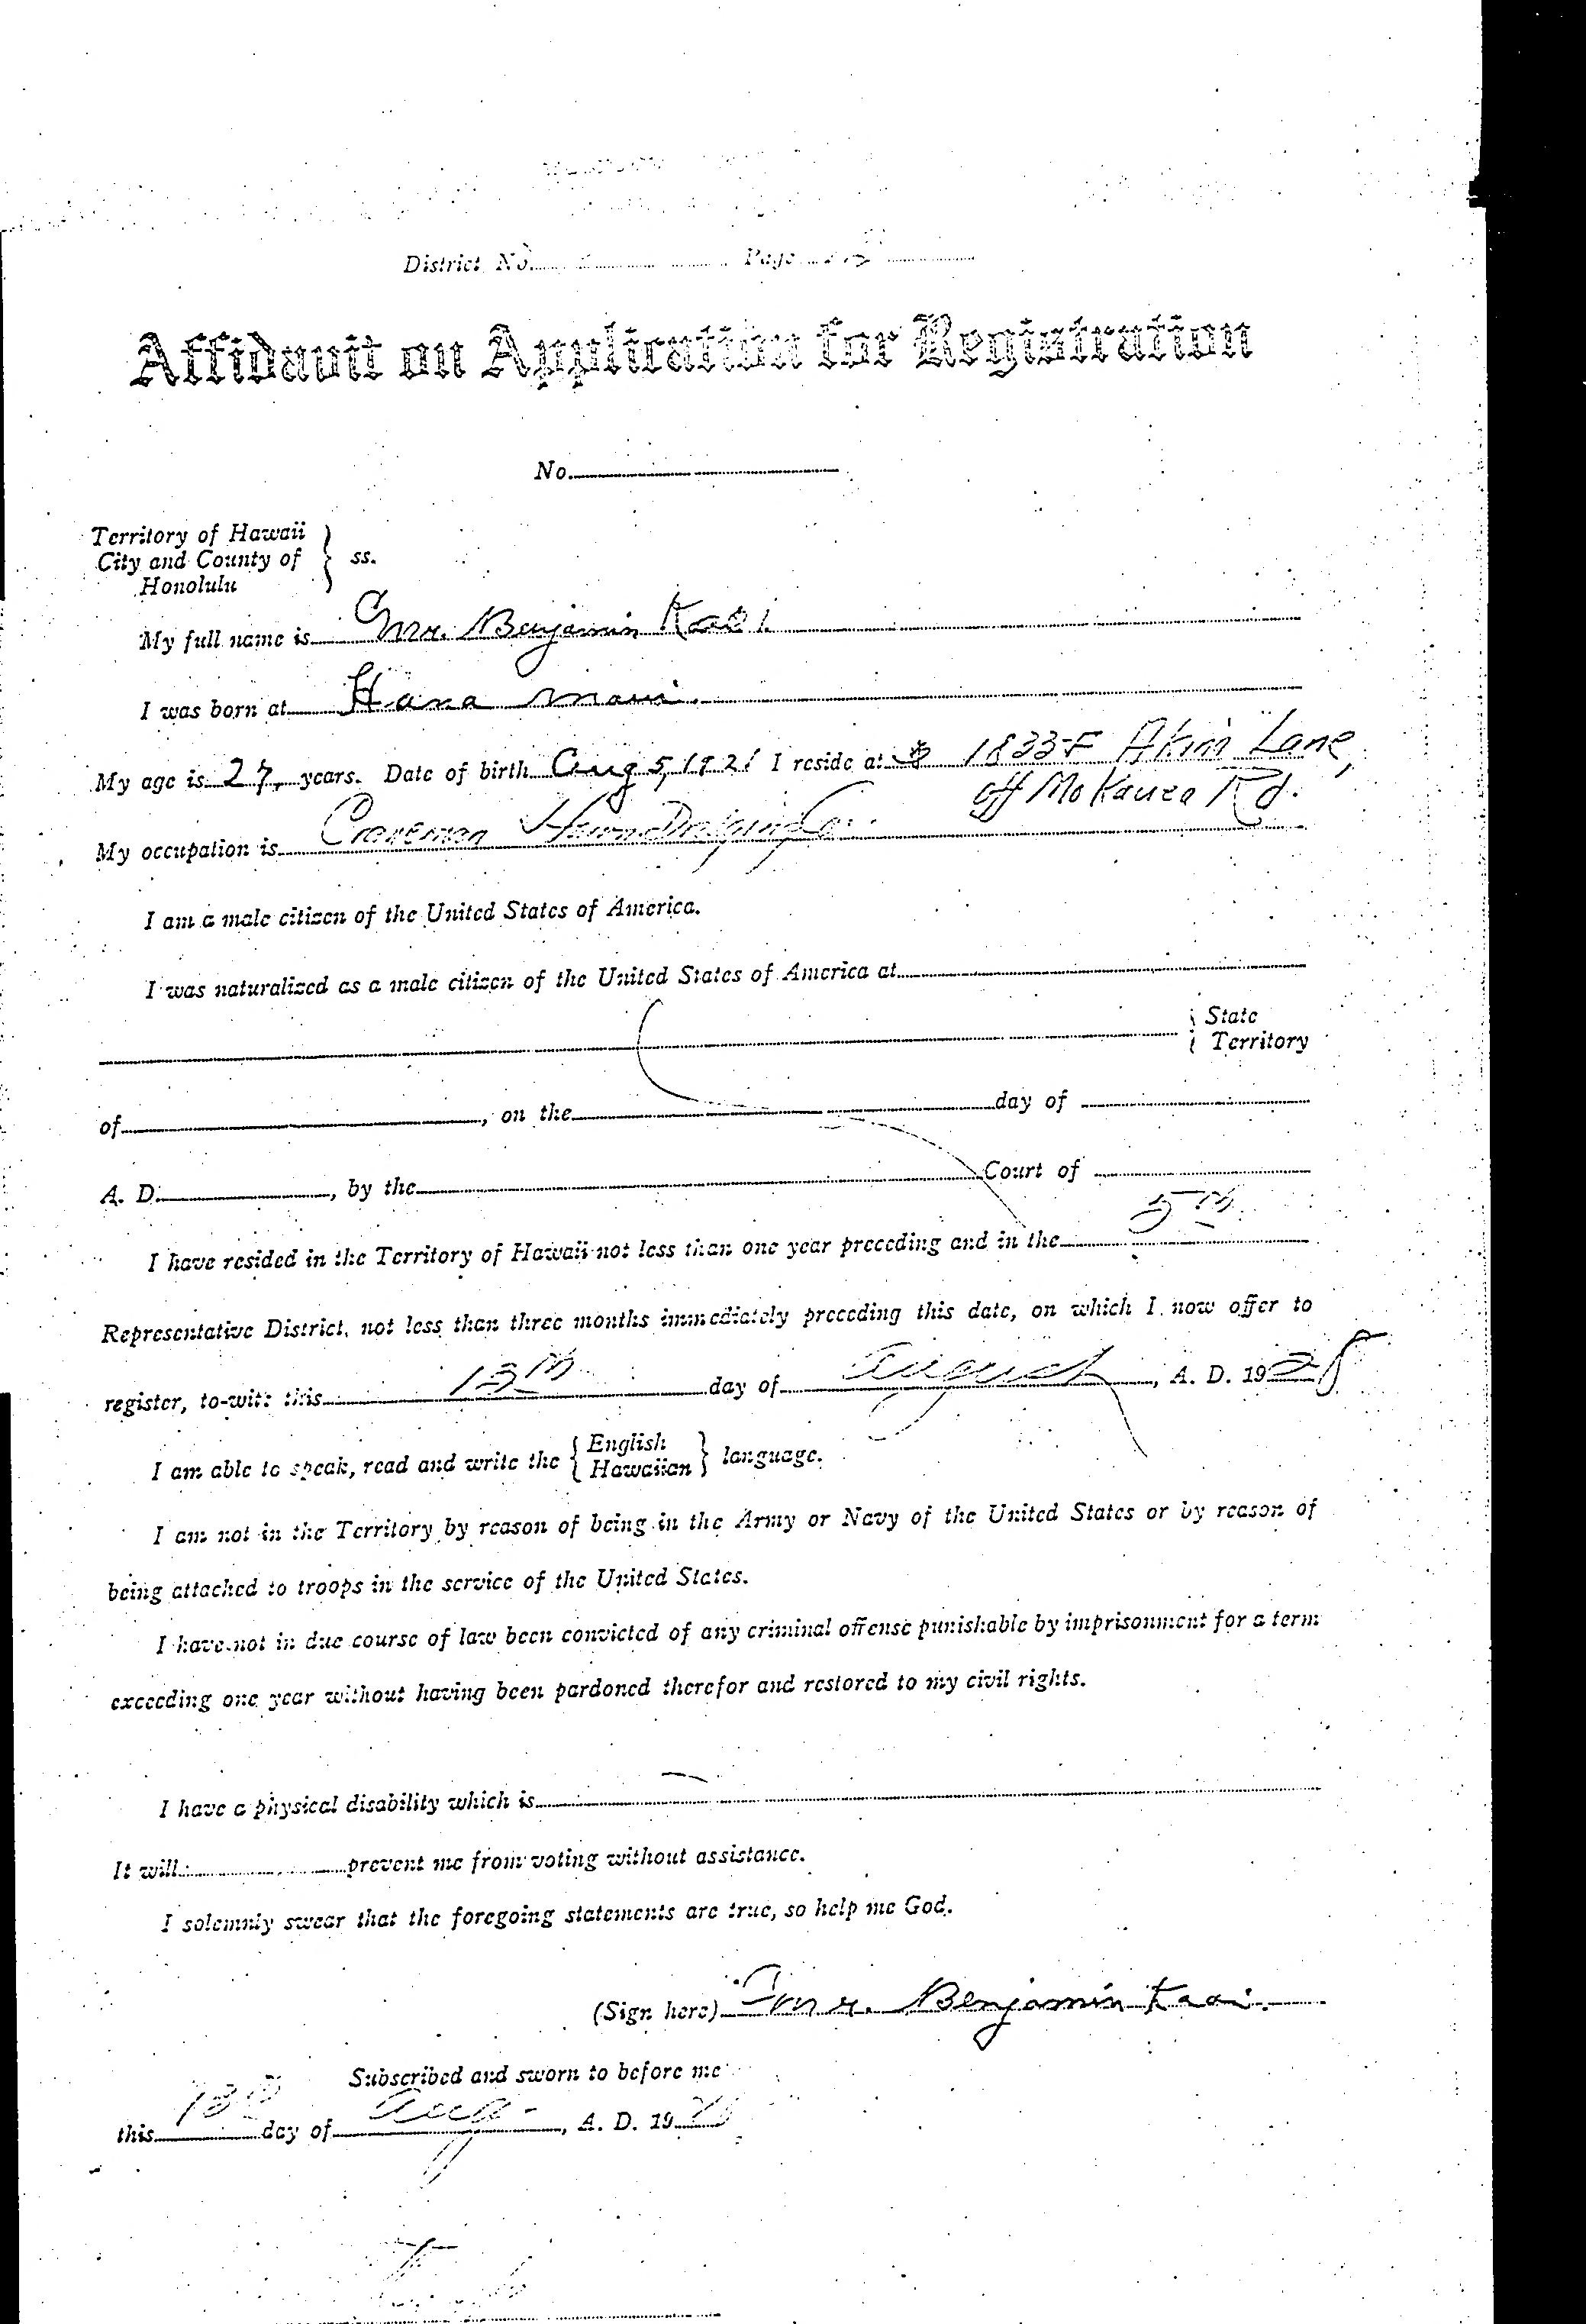 District No. Page
Affidavit on Application for Registration
No.
Territory of Hawaii
City and County of
Honolulu
} ss.
My full name is Mr. Benjamin Kaai
I was born at Hana Maui.
My age is 27, years. Date of birth Aug 5, 1921 I reside at 1833-F Akin Lane,
off Mokauea Rd.
My occupation is
I am a male citizen of the United States of America.
I was naturalized as a male citizen of the United States of America at
{ State
{ Territory
of , on the day of
A. D. , by the Court of
I have resided in the Territory of Hawaii not less than one year preceding and in the 5th
Representative District, not less than three months immediately preceding this date, on which I now offer to
register, to-wit: this 13th day of August, A. D. 1928
I am able to speak, read and write the { English Hawaiian } language.
I am not in the Territory by reason of being in the Army or Navy of the United States or by reason of
being attached to troops in the service of the United States.
I have not in due course of law been convicted of any criminal offense punishable by imprisonment for a term
exceeding one year without having been pardoned therefor and restored to my civil rights.
I have a physical disability which is
It will prevent me from voting without assistance.
I solemnly swear that the foregoing statements are true, so help me God.
(Sign here) Mr. Benjamin Kaai.
Subscribed and sworn to before me
this 13th day of Aug-, A. D. 19